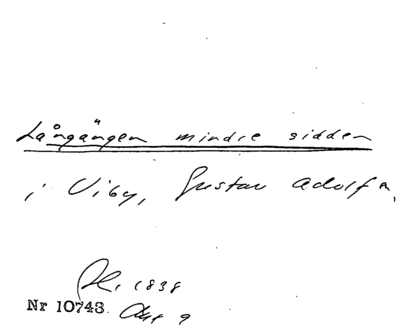 Långängen mindre sidden
i Viby, Gustav Adolf
1838
Nr 10743